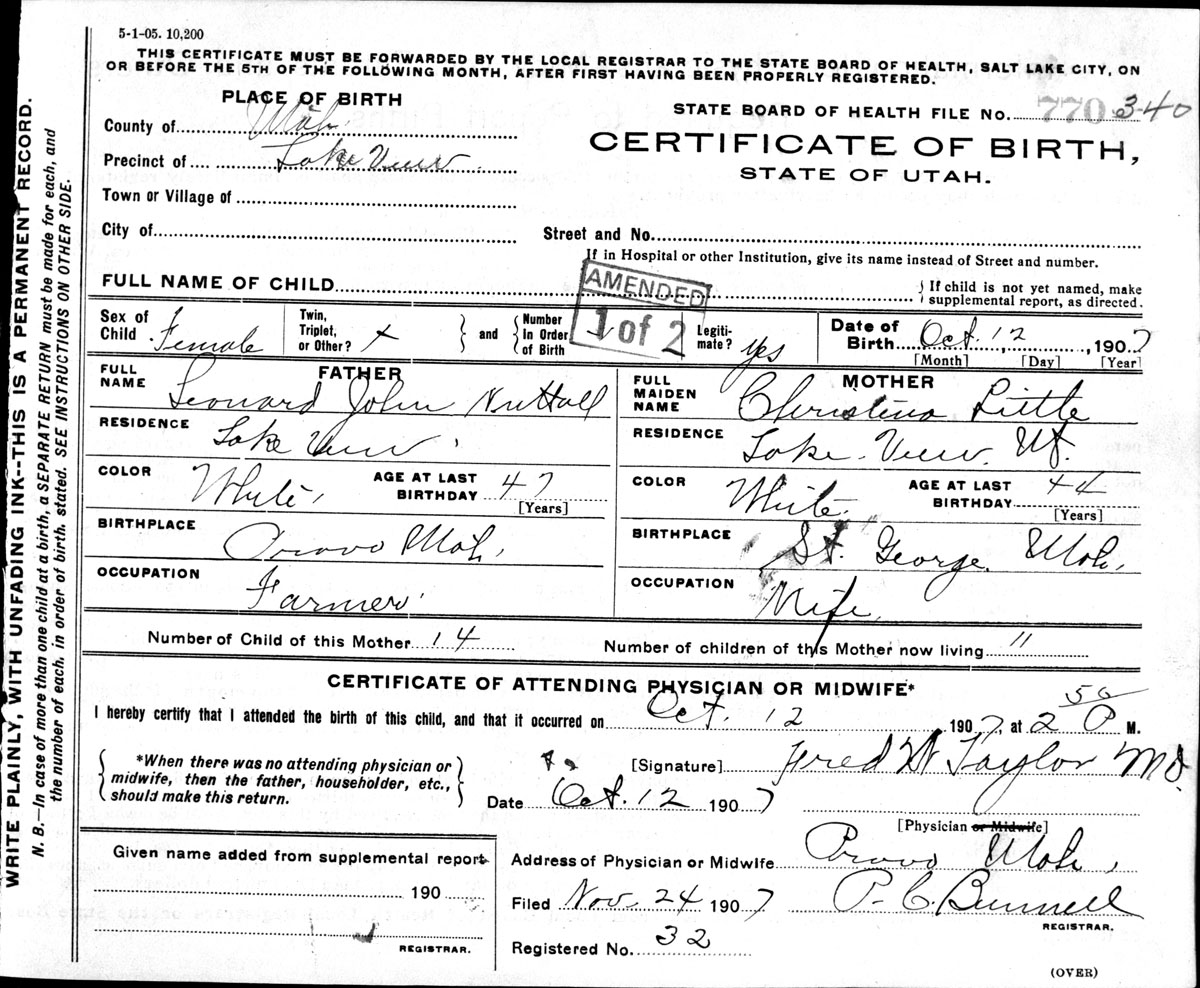 5-1-05. 10,200
THIS CERTIFICATE MUST BE FORWARDED BY THE LOCAL REGISTRAR TO THE STATE BOARD OF HEALTH, SALT LAKE CITY, ON
OR BEFORE THE 5TH OF THE FOLLOWING MONTH, AFTER FIRST HAVING BEEN PROPERLY REGISTERED.
WRITE PLAINLY, WITH UNFADING INK--THIS IS A PERMANENT RECORD.
N. B.—In case of more than one child at a birth, a SEPARATE RETURN must be made for each, and
the number of each, in order of birth, stated. SEE INSTRUCTIONS ON OTHER SIDE.
PLACE OF BIRTH
County of Utah
Precinct of Lake View
Town or Village of
City of
STATE BOARD OF HEALTH FILE No. 770 340
CERTIFICATE OF BIRTH,
STATE OF UTAH.
Street and No.
If in Hospital or other Institution, give its name instead of Street and number.
FULL NAME OF CHILD
If child is not yet named, make
supplemental report, as directed.
AMENDED
1 of 2
Sex of Child Female
Twin, Triplet, or Other? +
and
Number In Order of Birth
Legitimate? yes
Date of Birth Oct. 12, 1907
[Month] [Day] [Year]
FATHER
FULL NAME Leonard John Nuttall
RESIDENCE Lake View
COLOR White. AGE AT LAST BIRTHDAY 47
[Years]
BIRTHPLACE Provo Utah.
OCCUPATION Farmer
MOTHER
FULL MAIDEN NAME Christina Little
RESIDENCE Lake View. Ut.
COLOR White. AGE AT LAST BIRTHDAY 44
[Years]
BIRTHPLACE St. George Utah.
OCCUPATION Wife
Number of Child of this Mother 14
Number of children of this Mother now living 11
CERTIFICATE OF ATTENDING PHYSICIAN OR MIDWIFE*
I hereby certify that I attended the birth of this child, and that it occurred on Oct. 12 1907, at 2 50 P M.
*When there was no attending physician or
midwife, then the father, householder, etc.,
should make this return.
[Signature] Fred W Taylor MD.
Date Oct. 12 1907
[Physician or Midwife]
Given name added from supplemental report
190
REGISTRAR.
Address of Physician or Midwife Provo Utah,
Filed Nov. 24 1907 P. C. Bunnell
REGISTRAR.
Registered No. 32
(OVER)